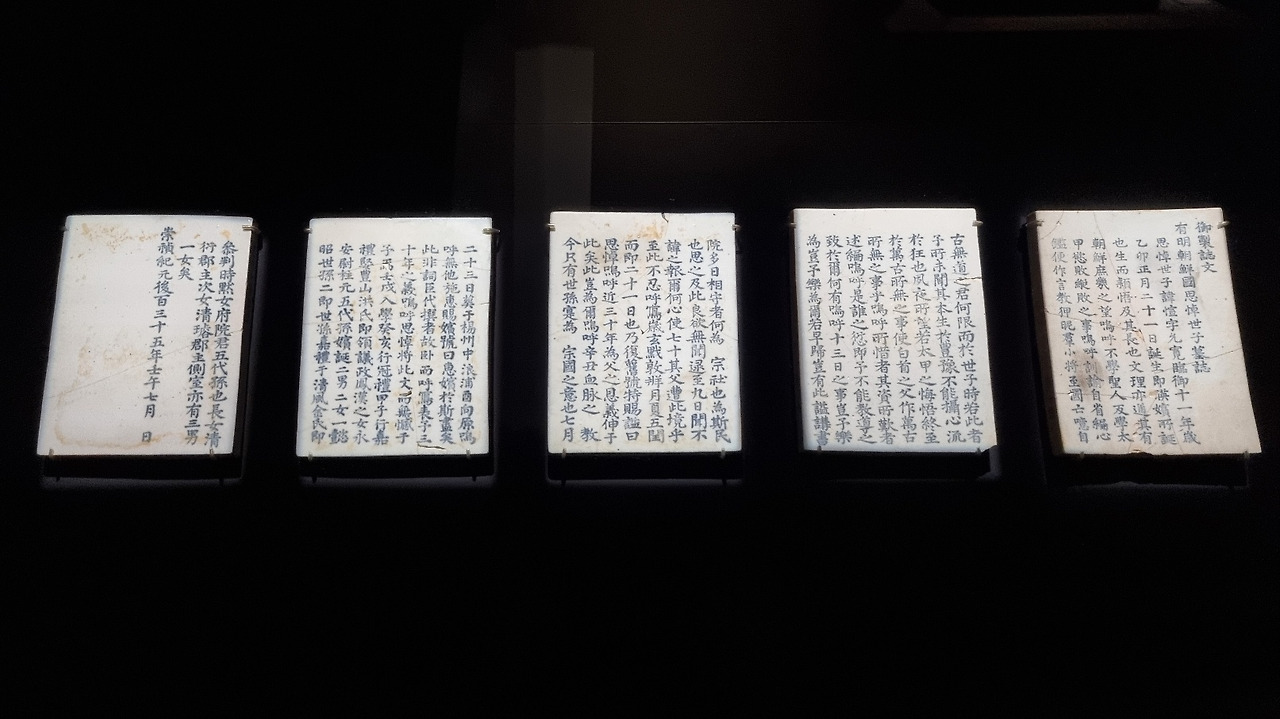 御製誌文
有明朝鮮國思悼世子墓誌
思悼世子諱愃字允寬臨御十一年歲
乙卯正月二十一日誕生即暎嬪所誕
也生而穎悟及其長也文理亦通其有
朝鮮庶幾之望嗚呼不學聖人反學太
甲慾敗縱敗之事嗚呼訓諭自省編心
鑑便作言教狎昵羣小將至國亡噫自
古無道之君何限而於世子時若此者
予所未聞其本生於豊豫不能攝心流
於狂也夙夜所望若太甲之悔悟終至
於萬古所無之事使白首之父作萬古
所無之事乎嗚呼所惜者其資所歎者
述編嗚呼是誰之愆即予不能教導之
致於爾何有嗚呼十三日之事豈予樂
為豈予樂為爾若早歸豈有此諡講書
院多日相守者何為 宗社也為斯民
也思之及此良欲無聞逮至九日聞不
諱之報爾何心使七十其父遭此境乎
至此不忍呼寫歲玄黓敦牂月夏五閏
而即二十一日也乃復舊號特賜諡曰
思悼嗚呼近三十年為父之恩義伸于
此矣此豈為爾嗚呼辛丑血脉之 教
今只有世孫寔為 宗國之意也七月
二十三日葬于楊州中浪浦酉向原嗚
呼無他施惠賜嬪號曰惠嬪於斯盡矣
此非詞臣代撰者故卧而呼寫表予三
十年之義嗚呼思悼將此文憾于
予壬戌入學癸亥行冠禮甲子行嘉
禮娶豊山洪氏即領議政鳳漢之女永
安尉柱元五代孫嬪誕二男二女一懿
昭世孫二即世孫嘉禮于清風金氏即
叅判時黙女府院君五代孫也長女清
衍郡主次女清璿郡主側室亦有三男
一女矣
崇禎紀元後百三十五年壬午七月 日